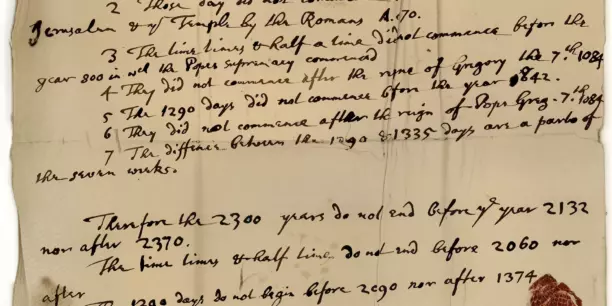 2 Those day did not comme
Jerusalem & ye Temple by the Romans A. 70.
3 The time times & half a time did not commence before the
year 800 in wch the Popes supremacy commenced
4 They did not commence after the reigne of Gregory the 7.th 1084
5 The 1290 days did not commence before the year 842.
6 They did not commence after the reign of Pope Greg. 7.th 1084
7 The diffence between the 1290 & 1335 days are a parts of
the seven weeks.
Therefore the 2300 years do not end before ye year 2132
nor after 2370.
The time times & half time do not end before 2060 nor
after
The 1290 days do not begin before 2090 nor after 1374